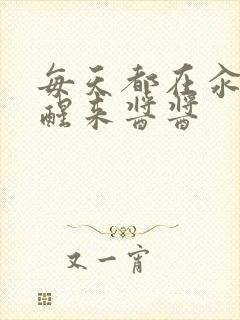 每天都在汆
醒来酱酱
又一宵